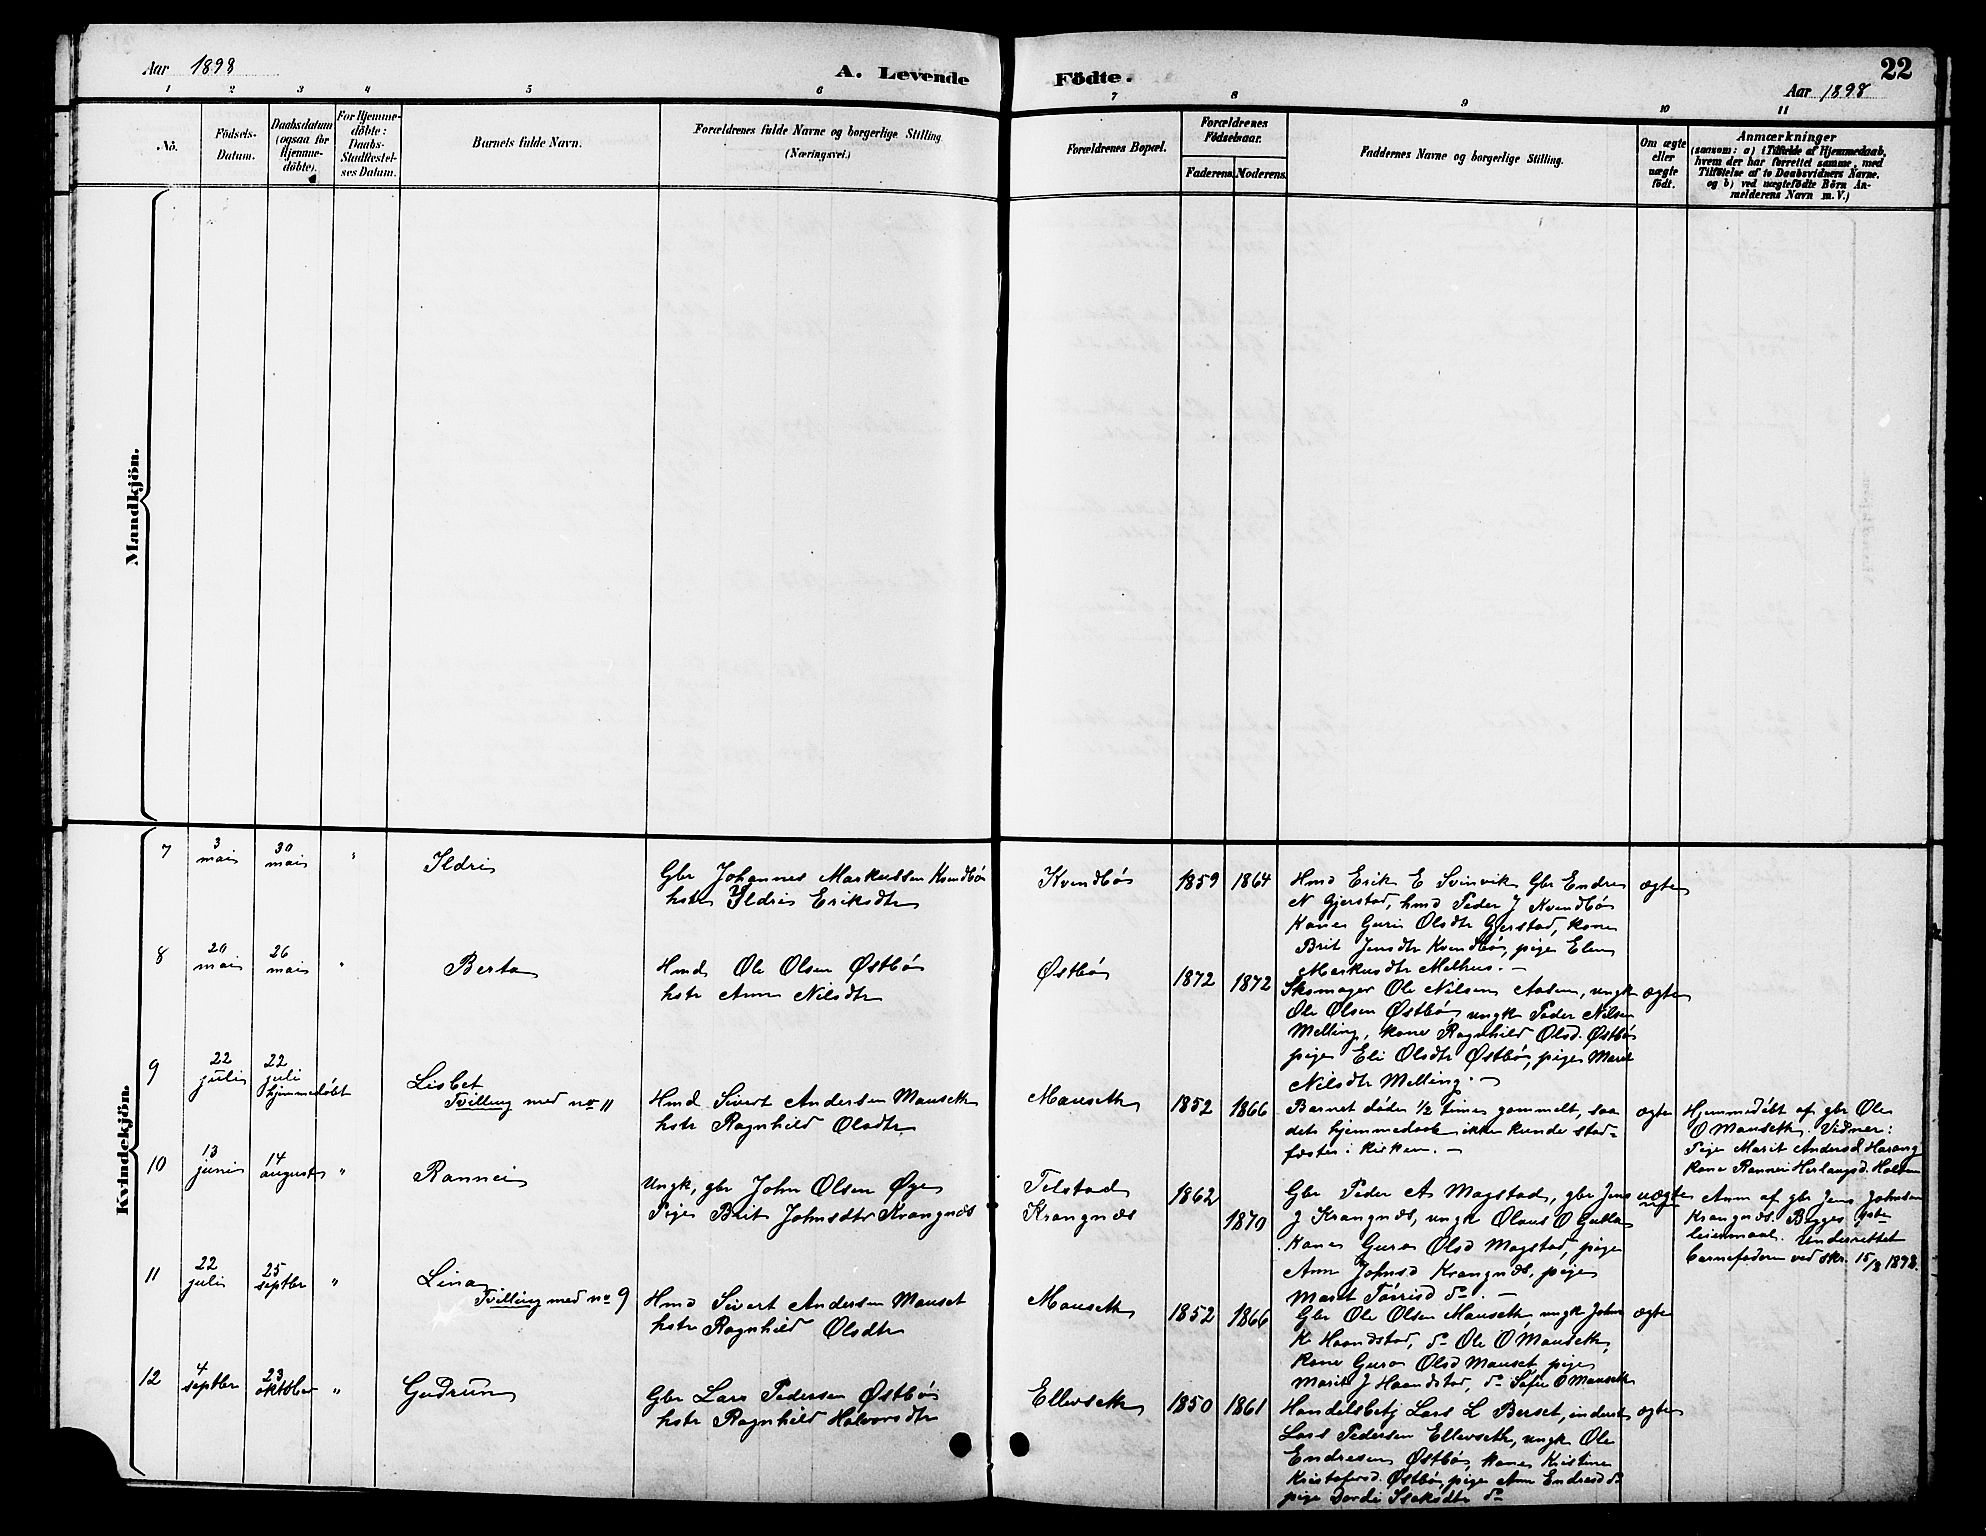 Aar 1898
A. Levende
Födte.
22
Aar 1898
1 2 3 4 5 6 7 8 9 10 11
No.
Födsels-
Datum.
Daabsdatum
(ogsaa for
Hjemme-
döbte).
For Hjemme-
döbte:
Daabs-
Stadfæstel-
ses Datum.
Barnets fulde Navn.
Forældrenes fulde Navne og borgerlige Stilling
(Næringsvei.)
Forældrenes Bopæl.
Forældrenes
Födselsaar.
Faderens. Moderens.
Faddernes Navne og borgerlige Stilling.
Om ægte
eller
uægte
födt.
Anmærkninger
(saasom: a) i Tilfælde af Hjemmedaab,
hvem der har forrettet samme, med
Tilföielse af to Daabsvidners Navne.
og b) ved uægtefödte Börn An-
melderens Navn m. V.)
Mandkjön.
Kvindekjön.
7
3
mai
30
mai
"
Ildri
Gbr Johannes Markussen Kvendbö
hstr Ildri Eriksdtr
Kvendbö
1859 1864
Hmd Erik E Svinvik Gbr Endre
N Gjerstad, hmd Peder J Kvendbö
Kone Guri Olsdtr Gjerstad, kone
Brit Jensdtr Kvendbö, pige Elen
Markusdtr Melhus. -
ægte
8
20
mai
26
mai
"
Berta
Hmd Ole Olsen Østbö
hstr Ann Nilsdtr
Østbö
1872 1872
Skomager Ole Nilsen Aasen, ungk
Ole Olsen Østbö, ungk Peder Nilsen
Melling, kone Ragnhild Olsd. Østbö
pige Eli Olsdtr Østbö, pige Marit
Nilsdtr Melling. -
ægte
9
22
juli
22
juli
hjemmedöbt
Lisbet
Tvilling med no 11
Hmd Sivert Andersen Mauseth
hstr Ragnhild Olsdtr
Mauseth
1852 1866
Barnet döde 1/2 time gammelt, saa
dets hjemmedaab ikke kunde stad-
fæstes i kirken. -
ægte
Hjemmedöbt af gbr Ole
O Mauseth. Vidner:
Pige Marit Andersd Harang
Kone Rannei Herlaugsd. Holten
10
13
juni
14
august
"
Rannei
Ungk, gbr John Olsen Øye
Pige Brit Johnsdtr Krangnæs
Telstad
Krangnæs
1862
1870
Gbr Peder A Magstad, gbr Jens
J Krangnæs, ungk Olaus O Gulla
Kone Guro Olsd Magstad, pige
Ann Johnsd Krangnæs, pige
Marit Törrisd do. -
uægte
Anm af gbr Jens Johnsen
Krangnæs. Begges
leiermaal. Underrettet
barnefaderen ved skr. 15/8 1898.
11
22
juli
25
septbr
"
Lina
Tvilling med no 9
Hmd Sivert Andersen Mauset
hstr Ragnhild Olsdtr
Mauseth
1852 1866
Gbr Ole Olsen Mauseth, ungk John
K Haandstad, do Ole O Mauseth,
Kone Guro Olsd Mauset, pige
Marit J Haandstad, do Sofie O Mauseth
ægte
12
4
septbr
23
oktober
"
Gudrun
Gbr Lars Pedersen Østbö
hstr Ragnhild Halvorsdtr
Ellevseth
1850 1861
Handelsbetj Lars L Berset, inderst
Lars Pedersen Ellevseth, ungk Ole
Endresen Østbö, kone Kristine
Kristofersd. Østbö, pige Ann Endresd do
pige Dordi Isaksdtr do
ægte